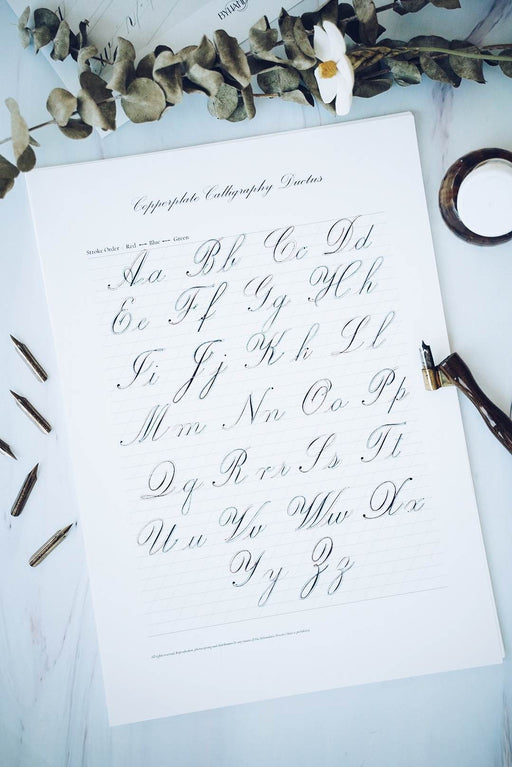 BYHAN
Copperplate Calligraphy Ductus
Stroke Order - Red ⟷ Blue ⟷ Green
Aa Bb Cc Dd
Ee Ff Gg Hh
Ii Jj Kk Ll
Mm Nn Oo Pp
Qq Rr r Ss Tt
Uu Vv Ww Xx
Yy Zz